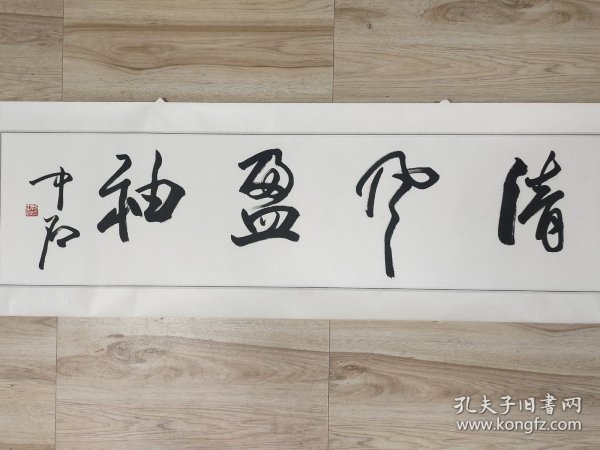 清风盈袖
中石
孔夫子旧書网
www.kongfz.com